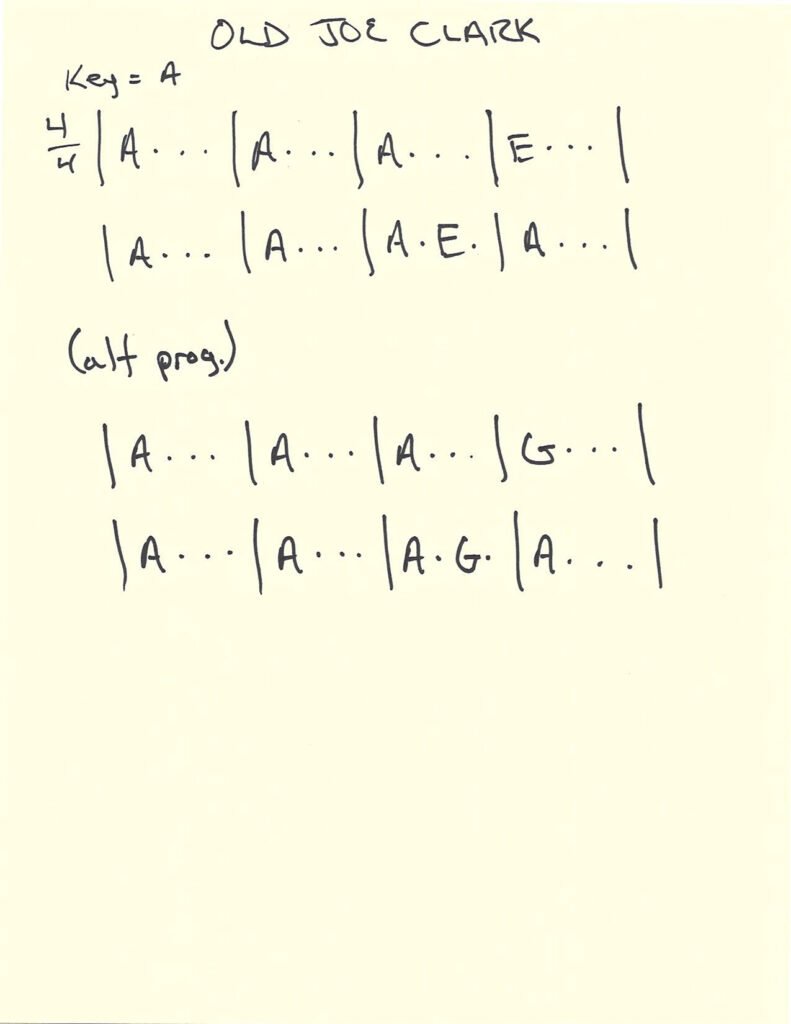 OLD JOE CLARK
Key = A
4/4 | A . . . | A . . . | A . . . | E . . . |
| A . . . | A . . . | A . E . | A . . . |
(alt prog.)
| A . . . | A . . . | A . . . | G . . . |
| A . . . | A . . . | A . G . | A . . . |